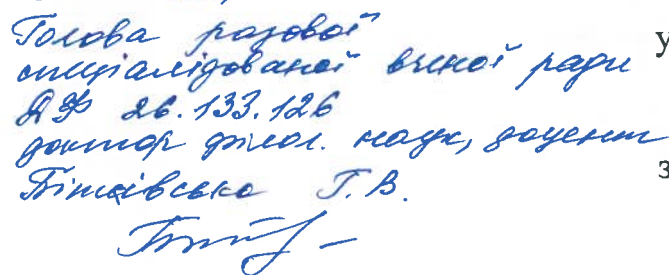 Голова разової
спеціалізованої вченої ради
ДФ 26.133.126
доктор філол. наук, доцент
Г. В.
у
з